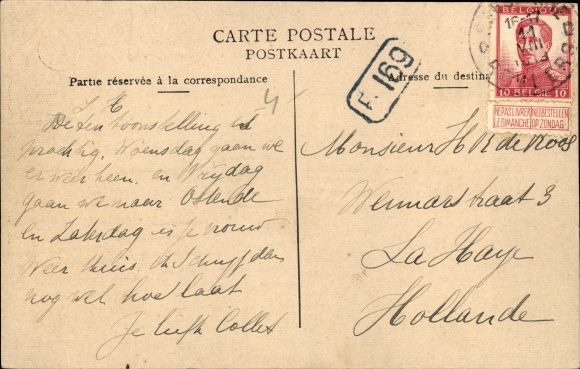 CARTE POSTALE
POSTKAART
Partie réservée à la correspondance
Adresse du destina
F. 169
BELGIQUE
10 BELGIË 10
NE PAS LIVRER NIET BESTELLEN
LE DIMANCHE OP ZONDAG
16-17
11
VIII
L
De tentoonstelling is
prachtig. Woensdag gaan we
er weer heen, en Vrijdag
gaan we naar Ostende
en Zaterdag is je vrouw
weer thuis. Ik schrijf dan
nog wel hoe laat
Je liefh Collet
Monsieur H R de Roos
Weimarstraat 3
La Haye
Hollande